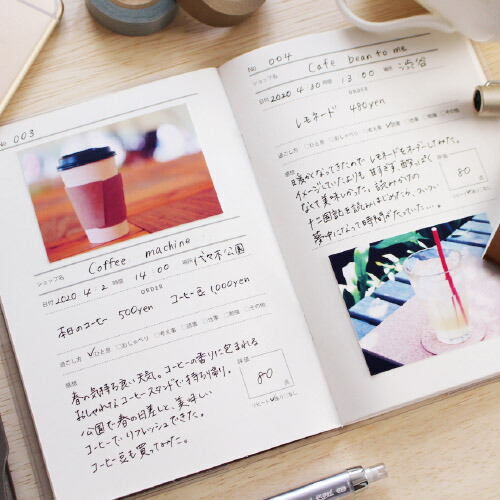 No 003
ショップ名 Coffee machine
日付 2020 4. 2 時間 14:00 場所 代々木公園
ORDER
本日のコーヒー 500yen コーヒー豆 1000yen
過ごし方 ✓ひと息 □おしゃべり □考え事 □読書 □仕事 □勉強 □その他
感想
春の気持ち良い天気。コーヒーの香りに包まれる
おしゃれなコーヒースタンドで持ち帰り。
公園で春の日差しと、美味しい
コーヒーでリフレッシュできた。
コーヒー豆も買ってみた。
評価
80
点
リピート ✓あり □なし
No 004
ショップ名 Cafe bean to me
日付 2020 4. 30 時間 13:00 場所 渋谷
ORDER
レモネード 480yen
過ごし方 □ひと息 □おしゃべり □考え事 ✓読書 □仕事 □勉強 □その他
感想
日度かくなってきたので レモネードをオーダーしてみた。
イメージしていたよりも 甘すぎず、酸っぱく
なくて美味しかった。読みかけの
十二国記を読みはじめたら、ついつい
夢中になって時間がたっていた...。
評価
80
点
リピート ✓あり □なし